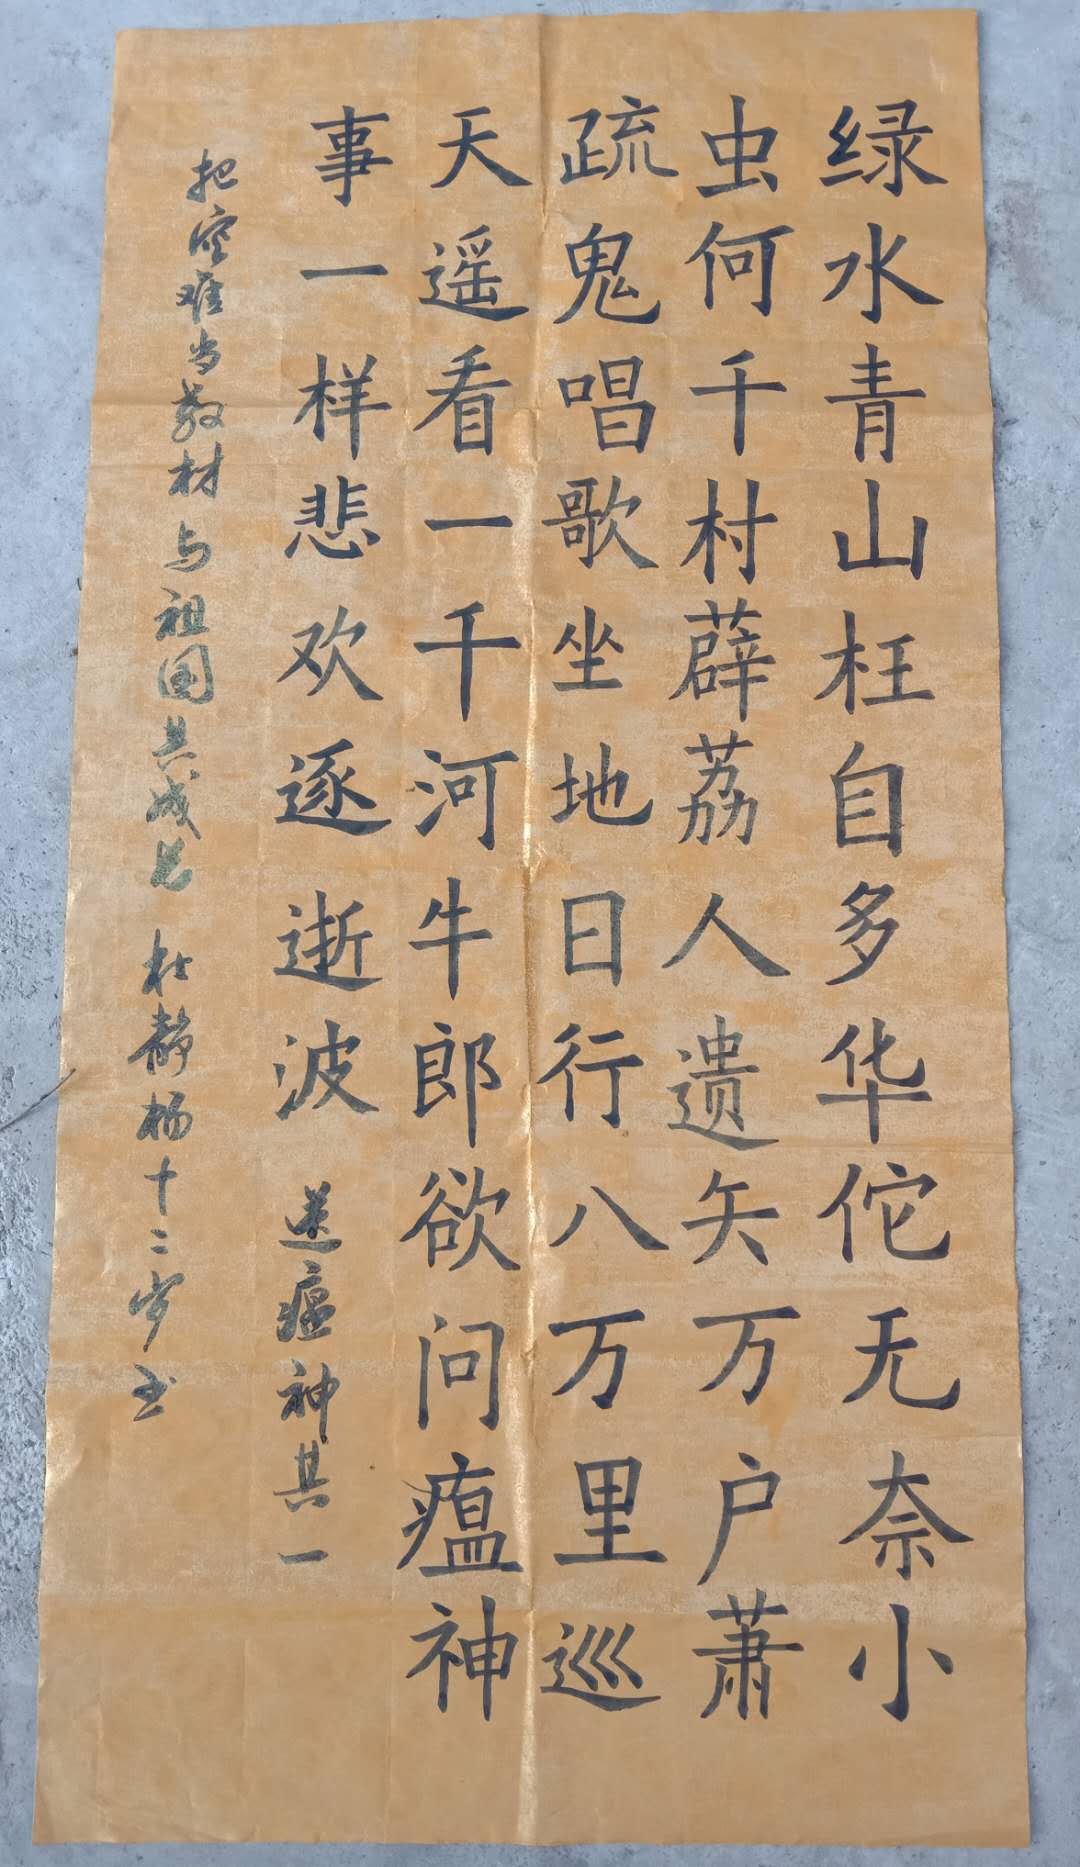 绿水青山枉自多华佗无奈小
虫何千村薜荔人遗矢万户萧
疏鬼唱歌坐地日行八万里巡
天遥看一千河牛郎欲问瘟神
事一样悲欢逐逝波
送瘟神其一
把灾难当教材与祖国共成长 杜静杨十二岁书